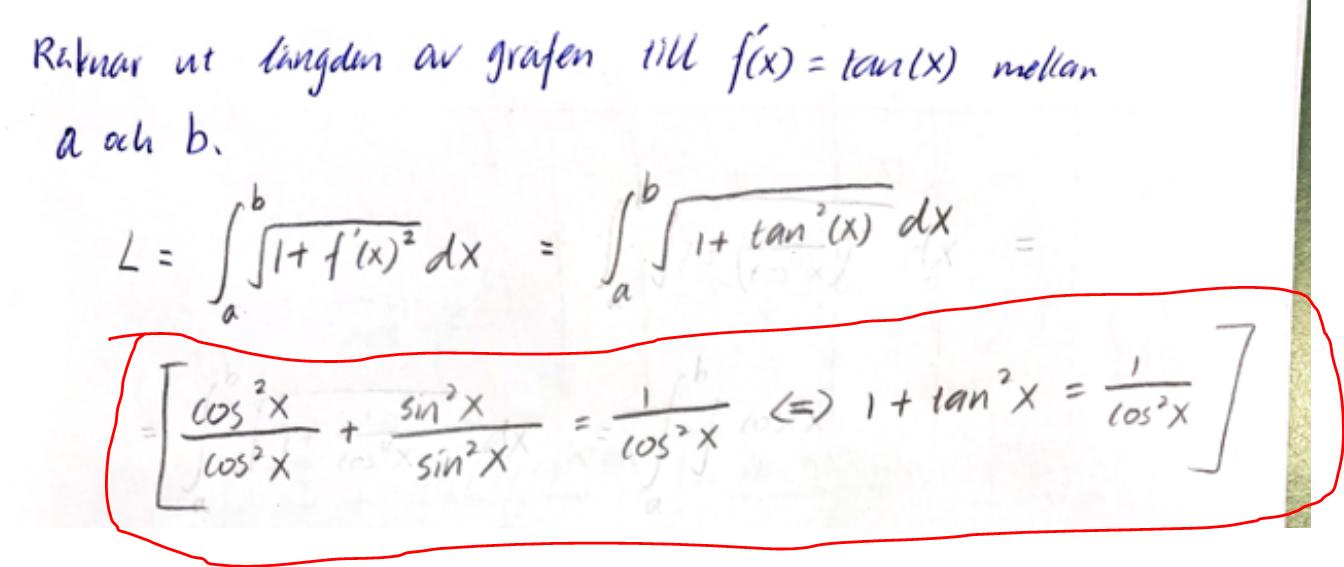 Räknar ut längden av grafen till f'(x) = tan(x) mellan
a och b.
L = ∫_a^b √(1 + f'(x)²) dx = ∫_a^b √(1 + tan²(x)) dx =
= [cos²x/cos²x + sin²x/sin²x = 1/cos²x <=> 1 + tan²x = 1/cos²x]